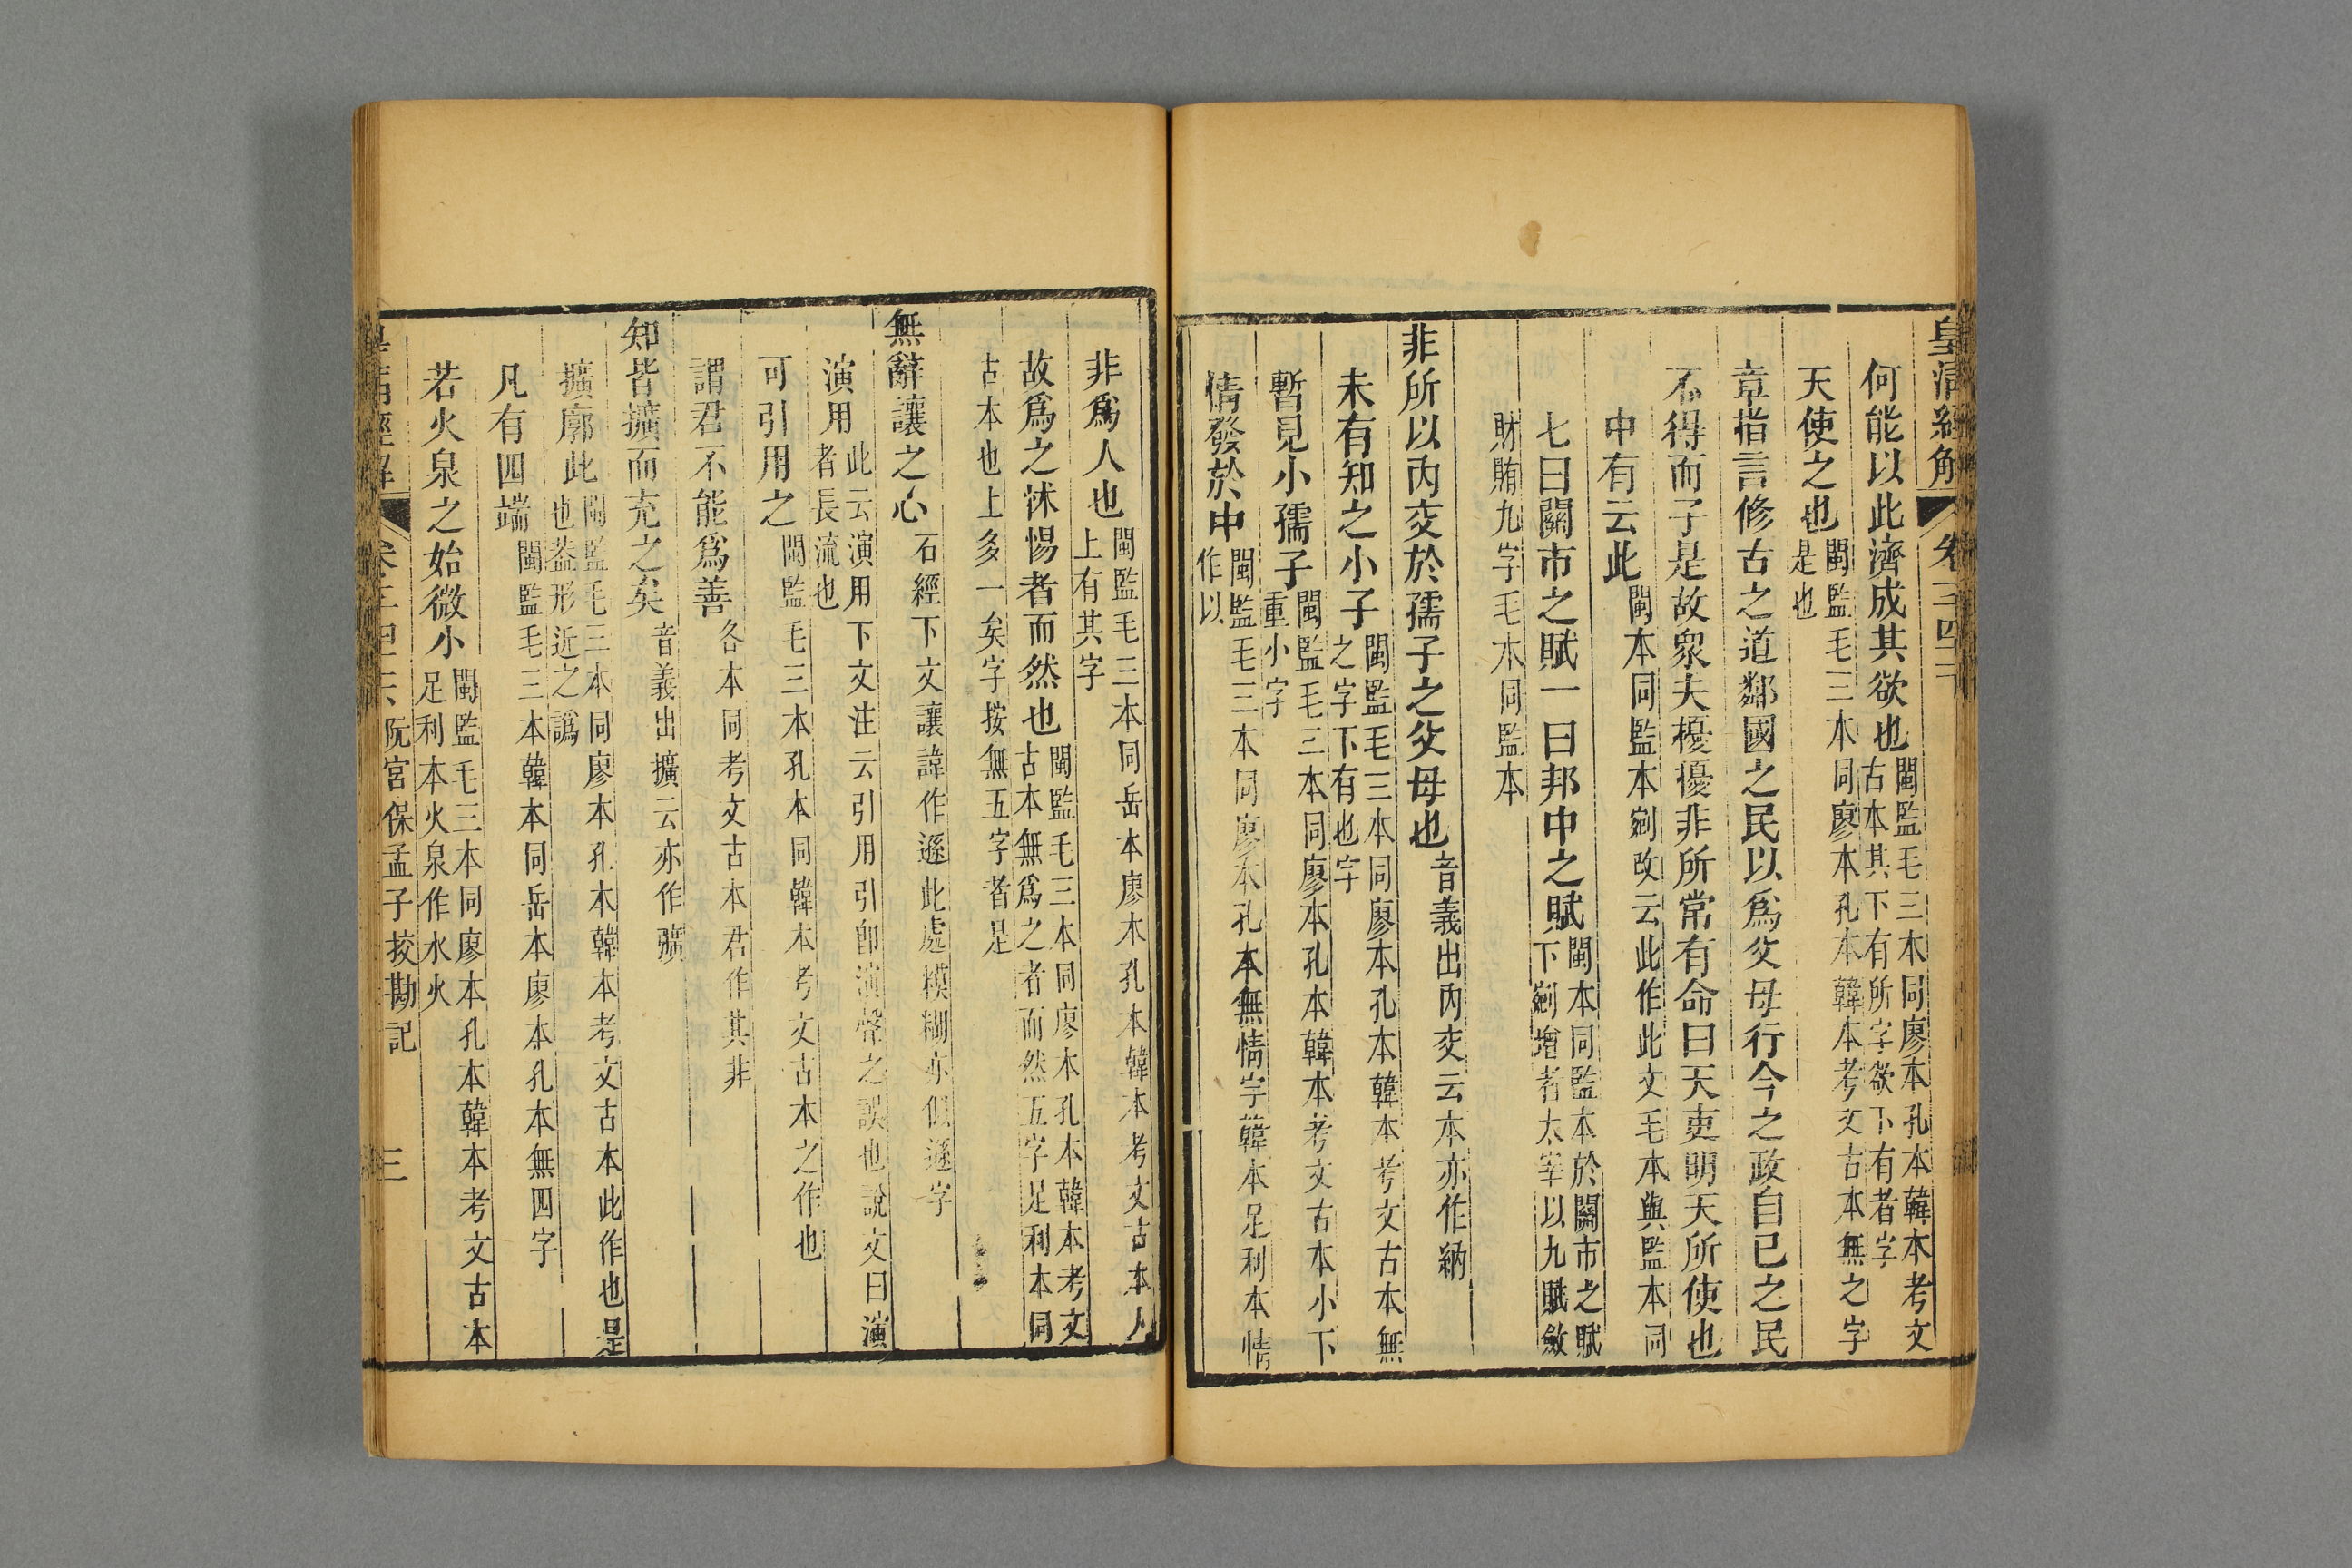 皇清經解 卷
何能以此濟成其欲也閩監毛三本同廖本孔本韓本考文
古本其下有所字欲下有者字
天使之也閩監毛三本同廖本孔本韓本考文古本無之字
是也
章指言修古之道鄰國之民以爲父母行今之政自己之民
不得而子是故衆夫擾擾非所常有命曰天吏明天所使也
中有云此閩本同監本剜改云此作此文毛本與監本同
七曰關市之賦一曰邦中之賦閩本同監本於關市之賦
下剜增者太宰以九賦斂
財賄九字毛本同監本
非所以內交於孺子之父母也音義出內交云本亦作納
未有知之小子閩監毛三本同廖本孔本韓本考文古本無
之字下有也字
暫見小孺子閩監毛三本同廖本孔本韓本考文古本小下
重小字
情發於中閩監毛三本同廖本孔本無情字韓本足利本情
作以
非爲人也閩監毛三本同岳本廖本孔本韓本考文古本人
上有其字
故爲之怵惕者而然也閩監毛三本同廖本孔本韓本考文
古本無爲之者而然五字足利本同
古本也上多一矣字按無五字者是
無辭讓之心石經下文讓諱作遜此處模糊亦似遜字
演用此云演用下文注云引用引卽演聲之誤也說文曰演
者長流也
可引用之閩監毛三本孔本同韓本考文古本之作也
謂君不能爲善各本同考文古本君作其非
知皆擴而充之矣音義出擴云亦作彍
擴廓此閩監毛三本同廖本孔本韓本考文古本此作也是
也葢形近之譌
凡有四端閩監毛三本韓本同岳本廖本孔本無四字
若火泉之始微小閩監毛三本同廖本孔本韓本考文古本
足利本火泉作水火
皇淸經解 卷 阮宮保孟子挍勘記 三